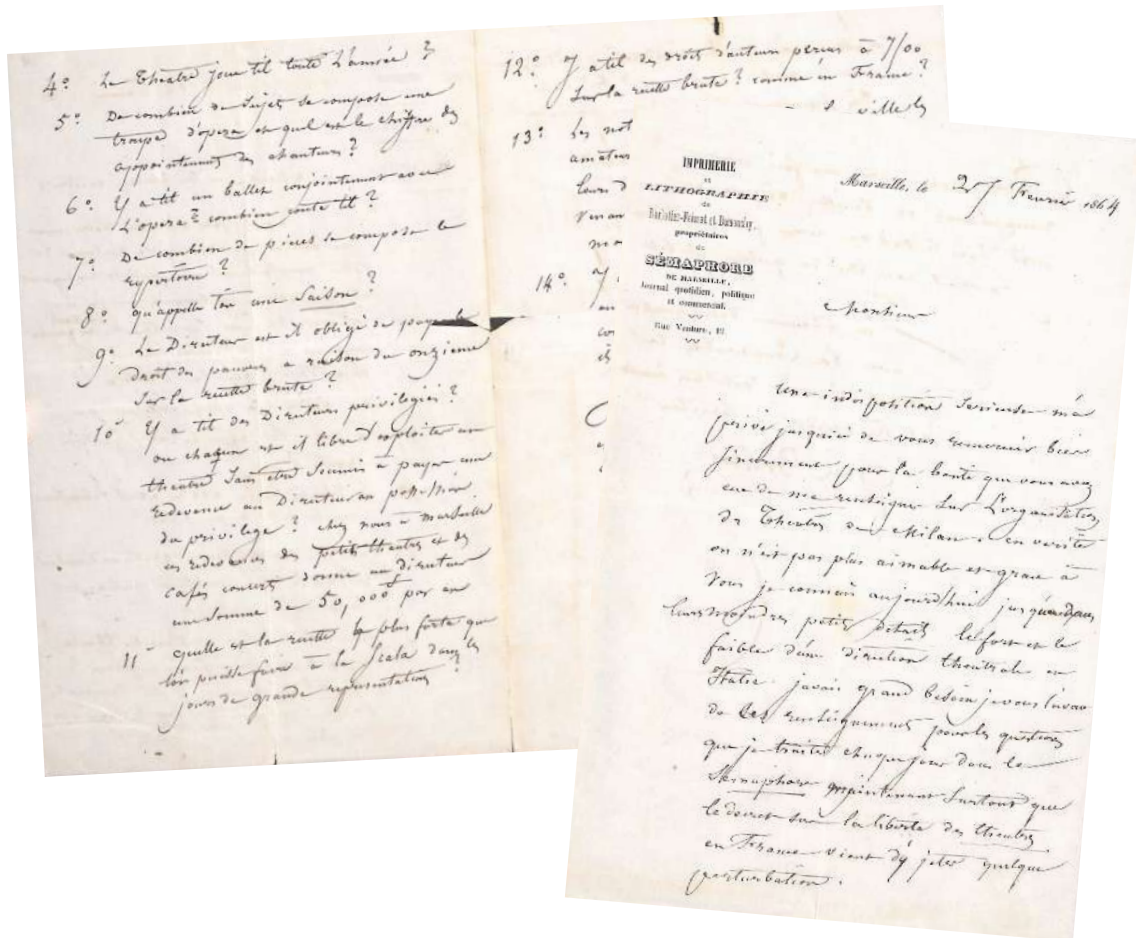 4° Le Théatre joue til toute L'année ?
5° De combien de Sujets se compose une
troupe d'opera et quel est le chiffre des
appointements des chanteurs ?
6° Y a til un ballet conjointement avec
L'opera ? combien coute til ?
7° De combien de pieces se compose le
repertoire ?
8° qu'appelle t'on une Saison ?
9° Le Directeur est il obligé de payer le
droit des pauvres a raison du onzieme
Sur la recette brute ?
10° Y a til des Directeurs privilegiés ?
ou chaqun est il libre d'exploiter un
theatre Sans être Soumis à payer une
redevance au Directeur en possession
du privilege ? chez nous a Marseille
ces redevances des petits theatres et des
cafés concerts donne au directeur
une Somme de 50,000 f par an
11° quelle est la recette la plus forte que
l'on puisse faire à la Scala dans les
jours de grande representation ?
12° Y a til des droits d'auteurs percus à 7/00
Sur la recette brute ? comme en France ?
ville les
13° Les not
amateurs
leurs d
14° Y
IMPRIMERIE
ET
LITHOGRAPHIE
de
propriétaires
du
SÉMAPHORE
DE MARSEILLE,
Journal quotidien, politique
et commercial.
Rue Venture, 19
Marseille, le 27 Fevrier 1864
Monsieur
Une indisposition Serieuse m'a
privé jusqu'ici de vous remercier bien
Sincerement pour la bonté que vous avez
eue de me renseigner Sur L'organisation
de Théatres de Milan - en verité
on n'est pas plus aimable et grace à
Vous je connais aujourd'hui jusque dans
leurs moindres petits details le fort et le
faible d'une direction theatrale en
Italie. j'avais grand besoin je vous l'avoue
de ces renseignements pour les questions
que je traite chaque jour dans le
Sémaphore maintenant Surtout que
le decret sur la liberté des theatres
en France vient d'y jeter quelque
perturbation.